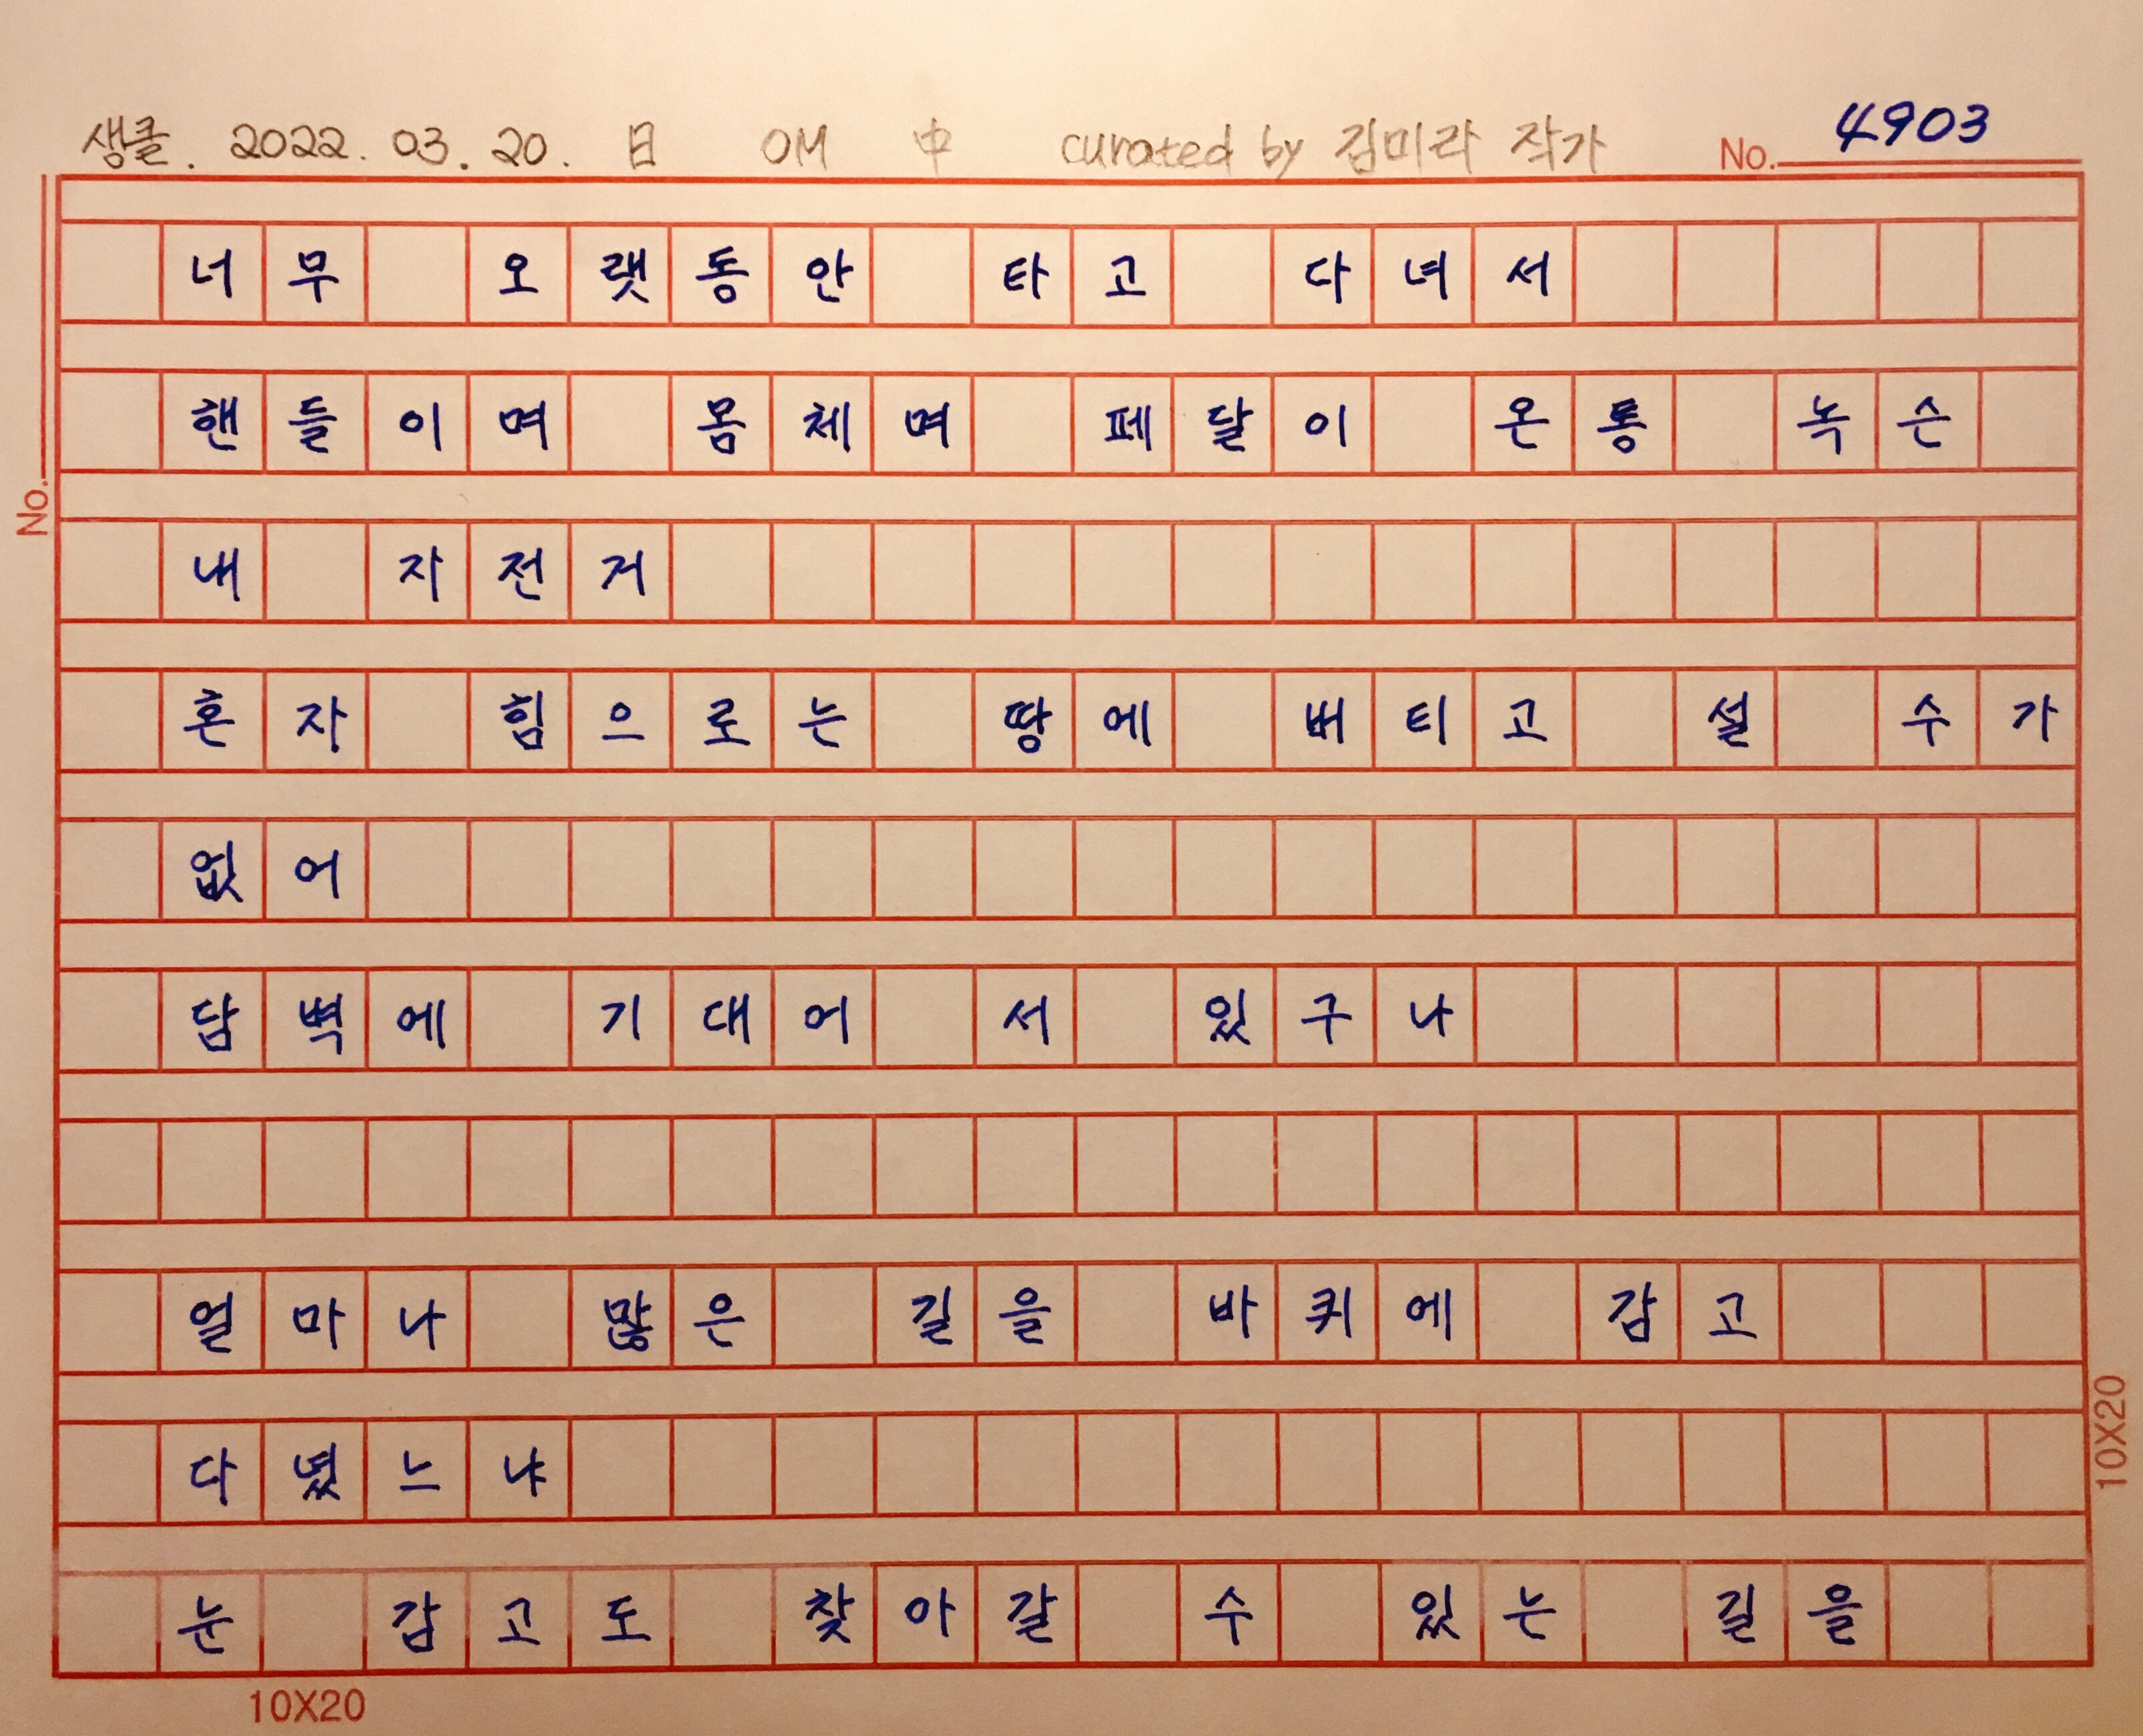 생클. 2022. 03. 20. 日 OM 中 curated by 김미라 작가 No. 4903
너무 오랫동안 타고 다녀서
핸들이며 몸체며 페달이 온통 녹슨
내 자전거
혼자 힘으로는 땅에 버티고 설 수가
없어
담벽에 기대어 서 있구나
얼마나 많은 길을 바퀴에 감고
다녔느냐
눈 감고도 찾아갈 수 있는 길을
No.
10X20
10X20